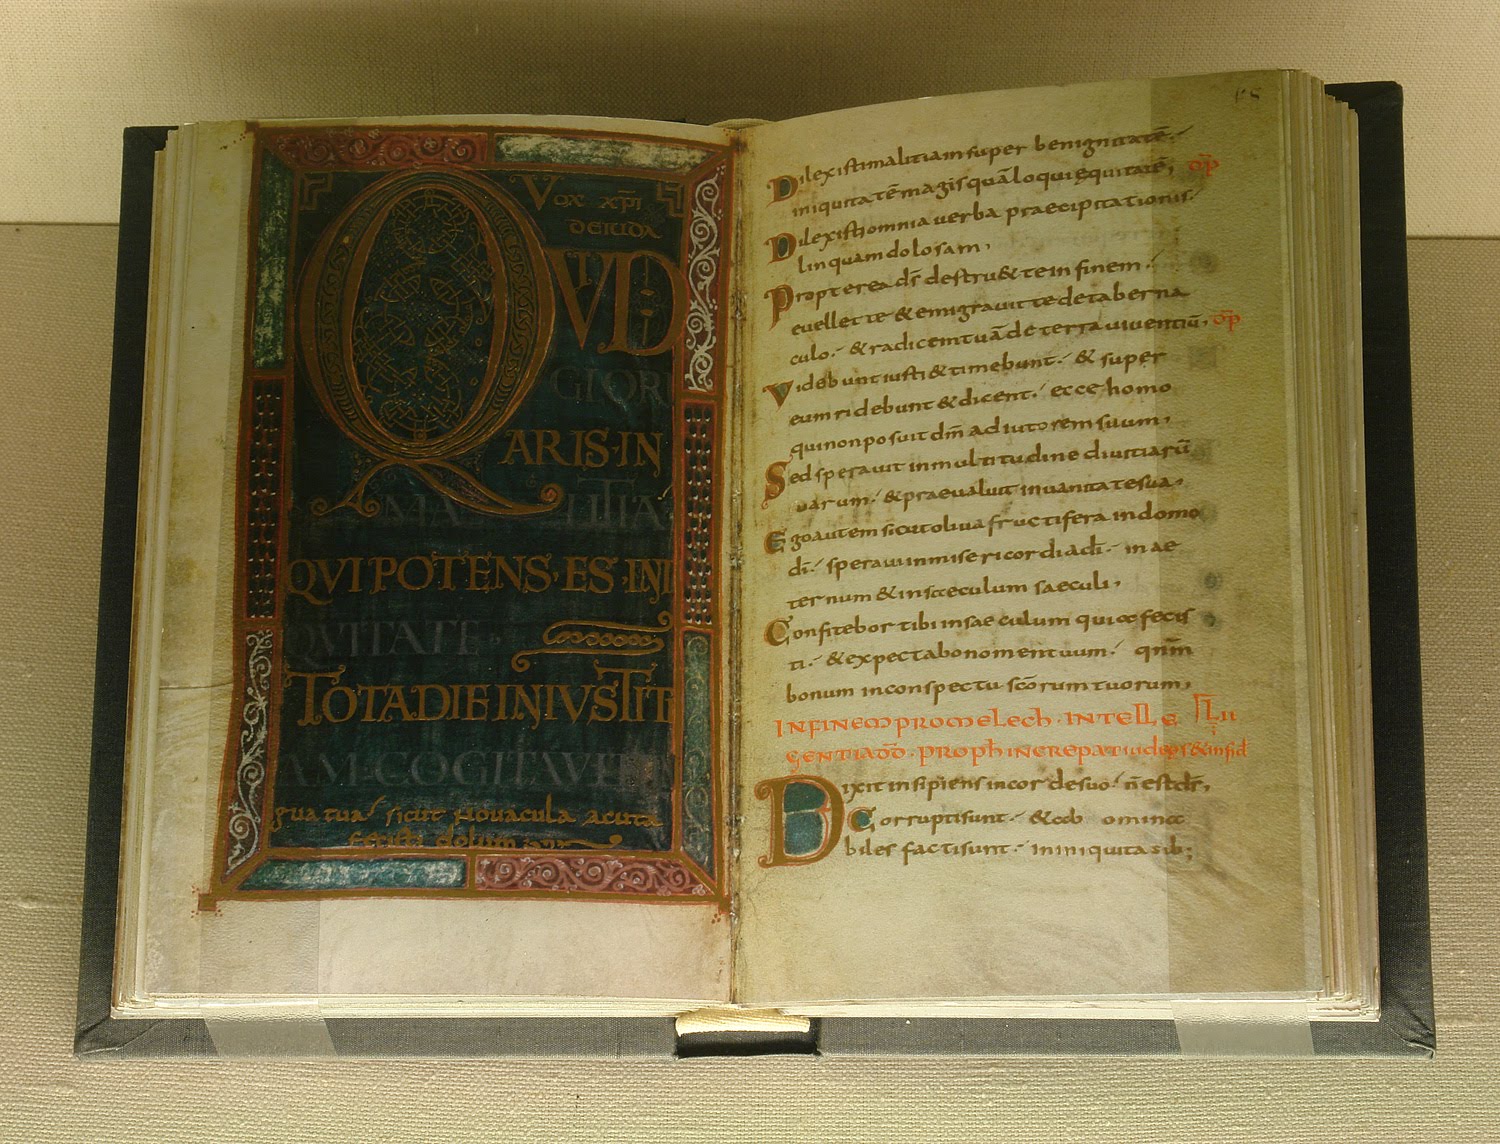 VOX XPI
DE IUDA
QVID
GLORI
ARIS·IN
MALITIA·
QVI POTENS·ES·INI
QVITATE·
TOTA DIE INIVSTITI
AM·COGITAVIT
gua tua· sicut novacula acuta
fecisti dolum
Dilexisti malitiam super benignitatē·
iniquitatē magis quā loqui equitatē; 
Dilexisti omnia verba praecipitationis·
linguam dolosam,
Propterea ds̄ destru& te in finem·
evellet te & emigravit te de taberna
culo· & radicem tuā de terra viventiū,
Videbunt iusti & timebunt· & super
eum ridebunt & dicent· ecce homo
qui non posuit dm̄ adiutorem suum,
Sed speravit in multitudine divitiarū
uarum· & praevaluit in vanitate sua,
Ego autem sicut oliva fructifera in domo
dī· speravi in misericordia dī· in ae
ternum & in saeculum saeculi,
Confitebor tibi in saeculum quia fecis
ti· & expectabo nomen tuum· qnm̄
bonum in conspectu scōrum tuorum,
IN FINEM PRO MELECH· INTELLE
GENTIA DD̄· PROPH INCREPAT
Dixit insipiens in corde suo· n̄ est ds̄,
Corrupti sunt· & ab omina
biles facti sunt· in iniquitatib;